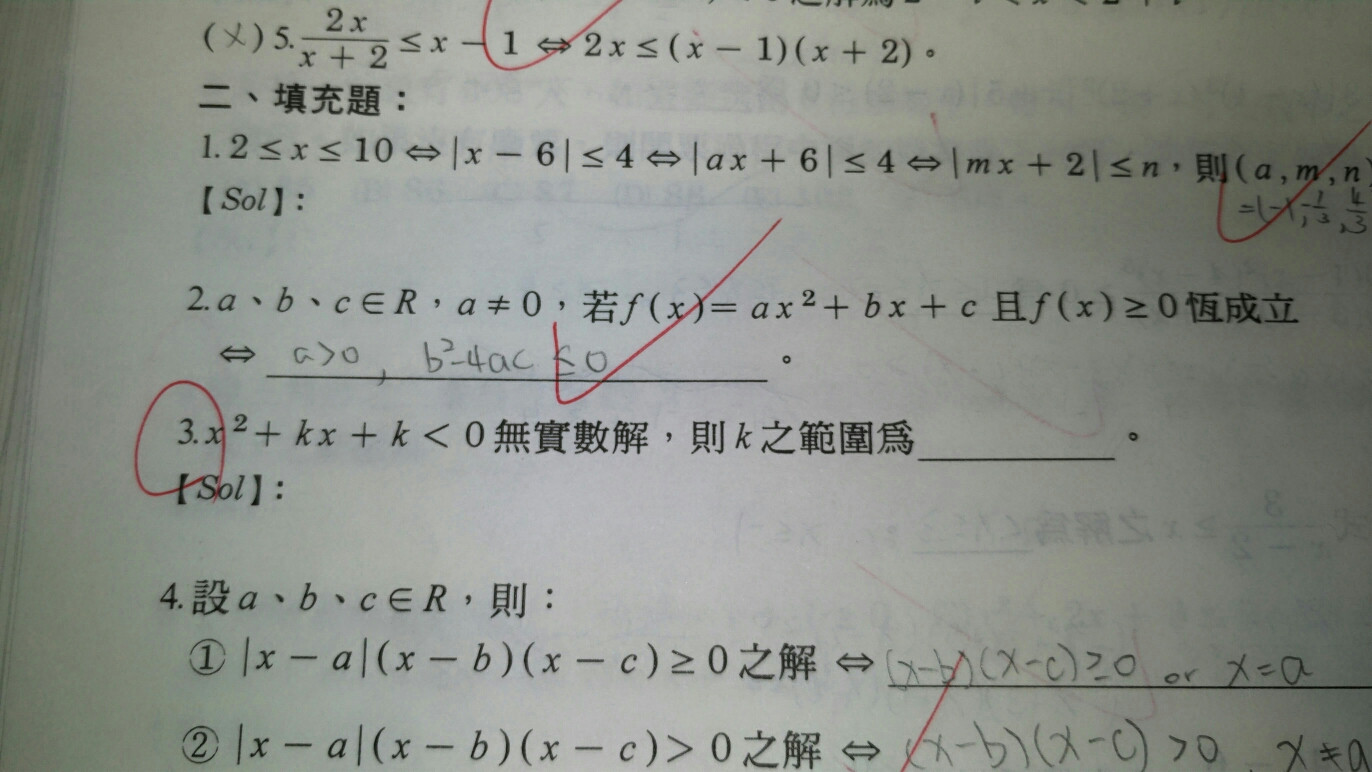 (×) 5. 2x/(x + 2) ≤ x − 1 ⇔ 2x ≤ (x − 1)(x + 2)。
二、填充題：
1. 2 ≤ x ≤ 10 ⇔ |x − 6| ≤ 4 ⇔ |ax + 6| ≤ 4 ⇔ |mx + 2| ≤ n，則(a, m, n)
【Sol】： =(-1, -1/3, 4/3
2. a、b、c ∈ R，a ≠ 0，若 f(x) = ax² + bx + c 且 f(x) ≥ 0 恆成立
⇔ a>0, b²-4ac ≤ 0。
3. x² + kx + k < 0 無實數解，則 k 之範圍為______。
【Sol】：
4. 設 a、b、c ∈ R，則：
① |x − a|(x − b)(x − c) ≥ 0 之解 ⇔ (x-b)(x-c)≥0 or x=a
② |x − a|(x − b)(x − c) > 0 之解 ⇔ (x-b)(x-c)>0, x≠a